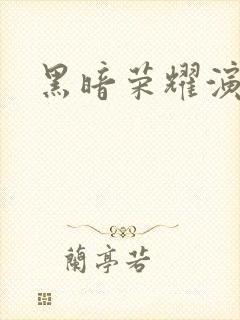 黑暗荣耀演
蘭亭若